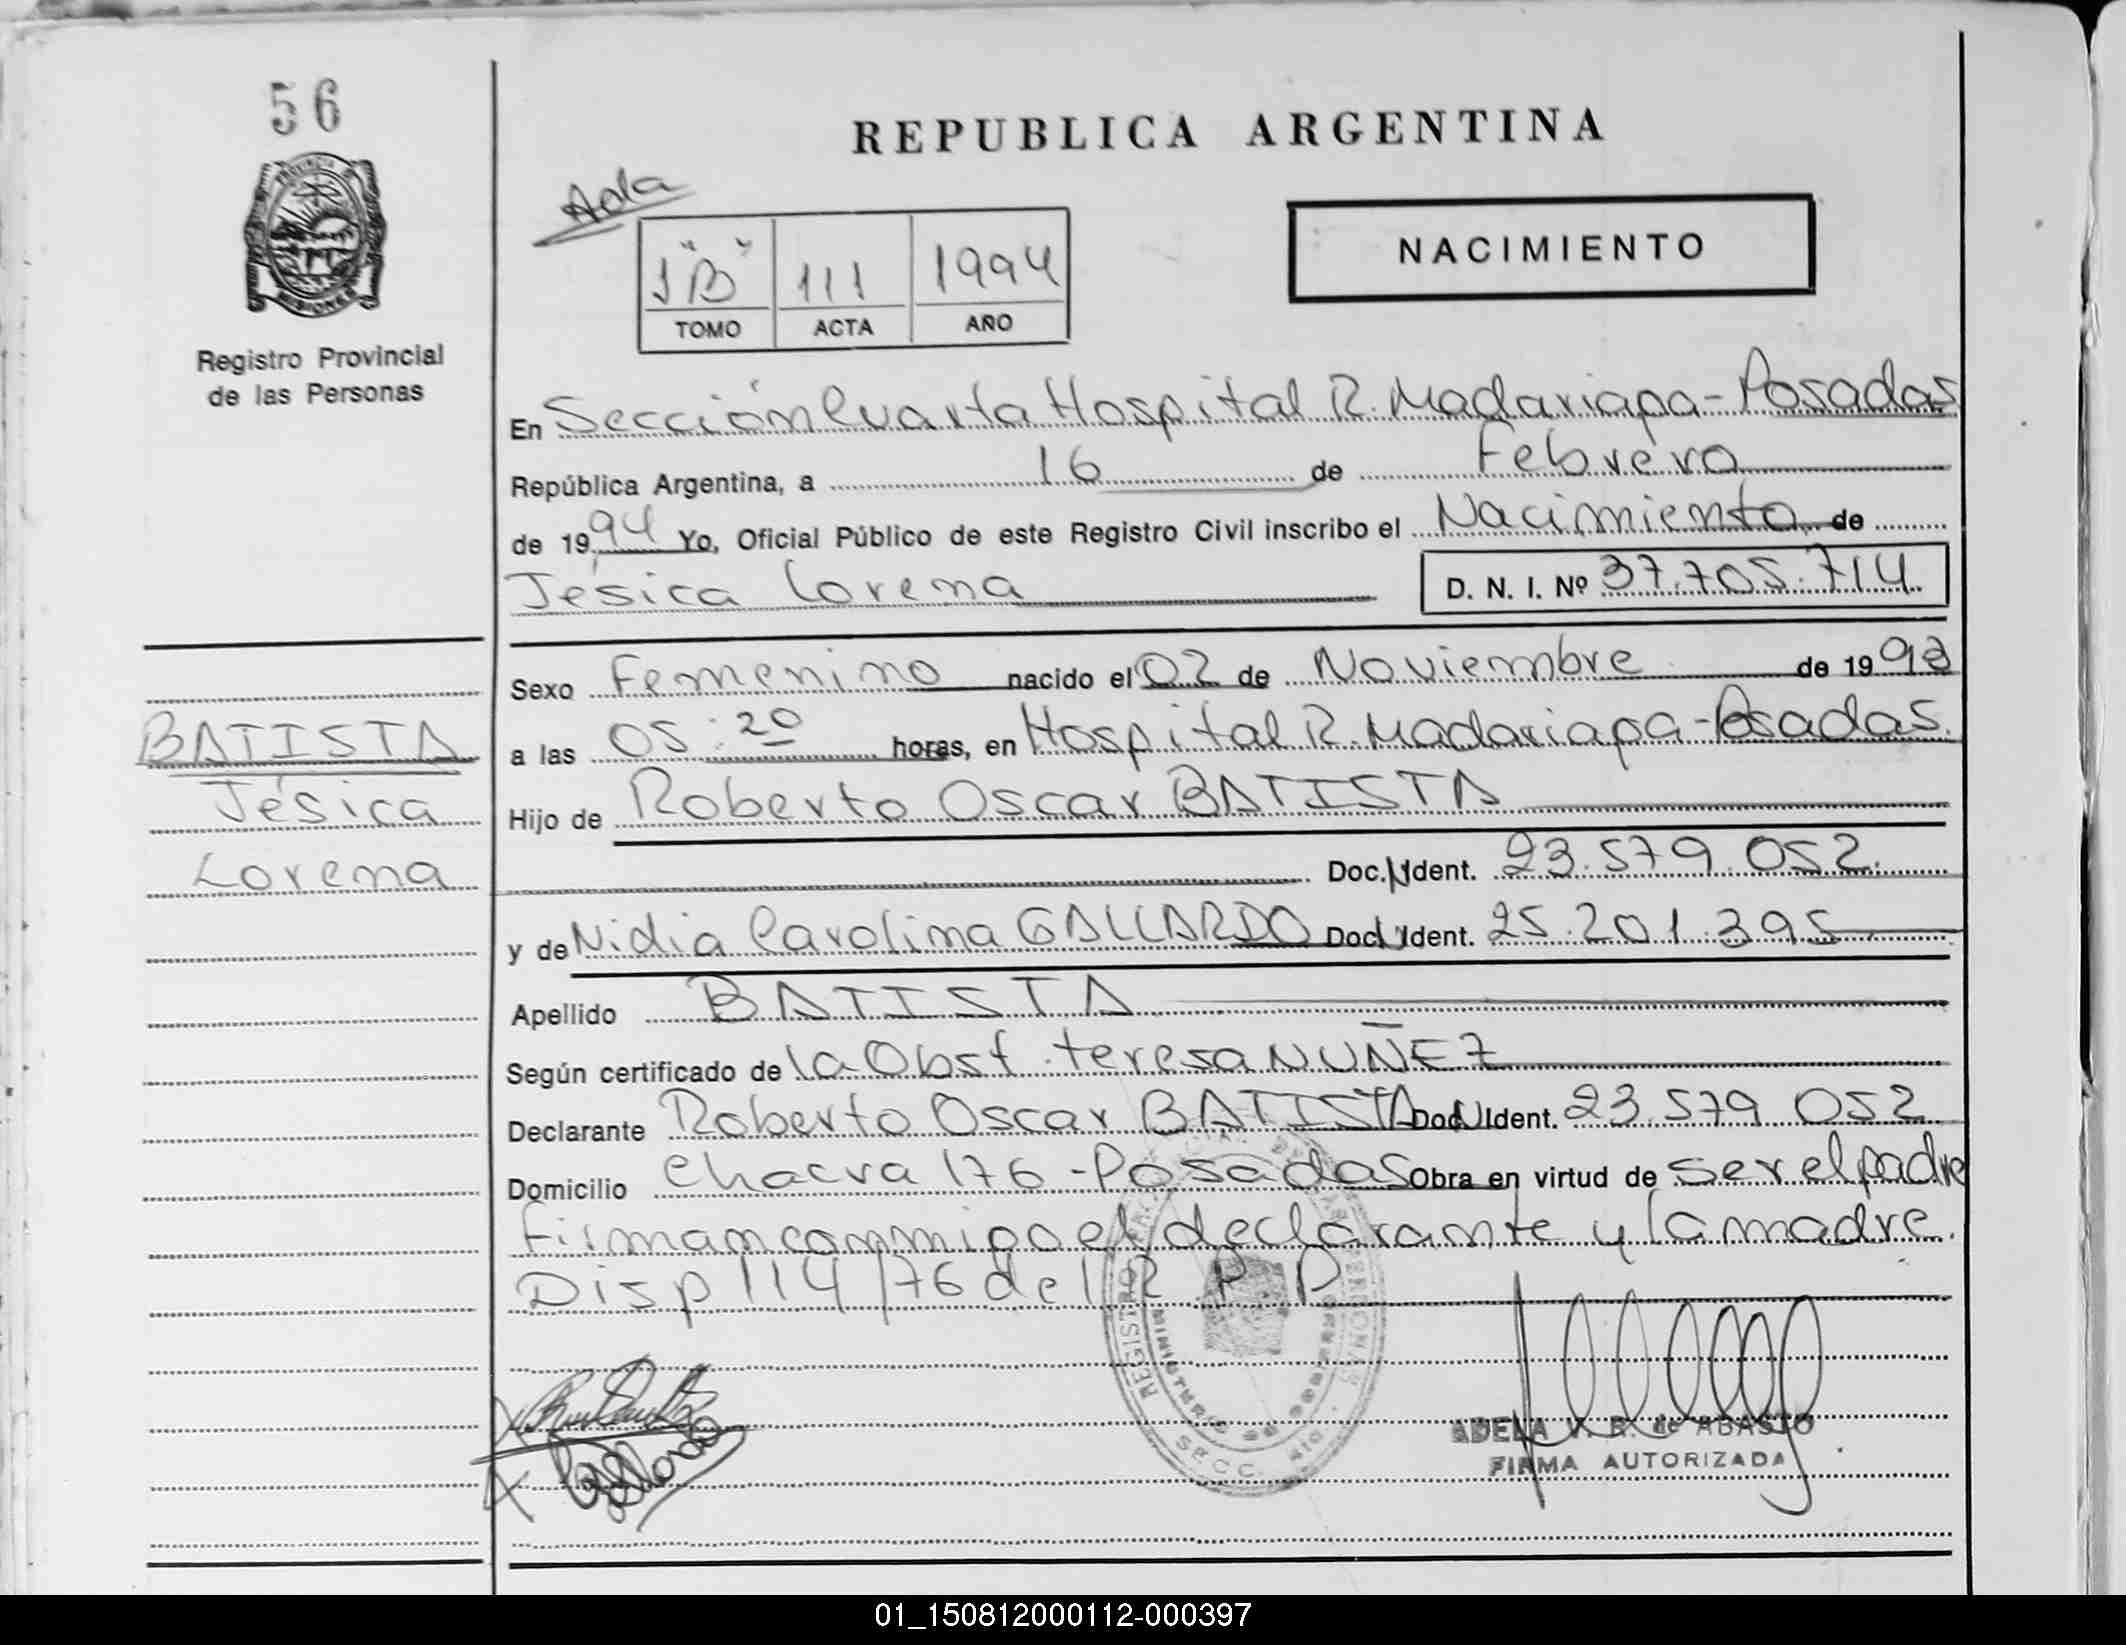 56
REPUBLICA ARGENTINA
Acta
1 "B" 111 1994
TOMO ACTA AÑO
NACIMIENTO
MISIONES
Registro Provincial
de las Personas
En Sección Cuarta Hospital R. Madariaga - Posadas
República Argentina, a 16 de Febrero
de 1994 Yo, Oficial Público de este Registro Civil inscribo el Nacimiento de
Jésica Lorena D. N. I. Nº 37.705.714
Sexo Femenino nacido el 02 de Noviembre de 1993
BATISTA
a las 05:20 horas, en Hospital R. Madariaga - Posadas.
Jésica
Hijo de Roberto Oscar BATISTA
Lorena
Doc. N Ident. 23.579.052.
y de Nidia Carolina GALLARDO Doc. U Ident. 25.201.395
Apellido BATISTA
Según certificado de la Obst. teresa NUÑEZ
Declarante Roberto Oscar BATISTA Doc. N Ident. 23.579.052
Domicilio Chacra 176 - Posadas Obra en virtud de ser el padre
firman conmigo el declarante y la madre.
Disp 114/76 del R. P. P.
REGISTRO
MINISTERIO DE GOBIERNO
SECC. 4ta.
ADELA V. B. de ABASTO
FIRMA AUTORIZADA
01_150812000112-000397